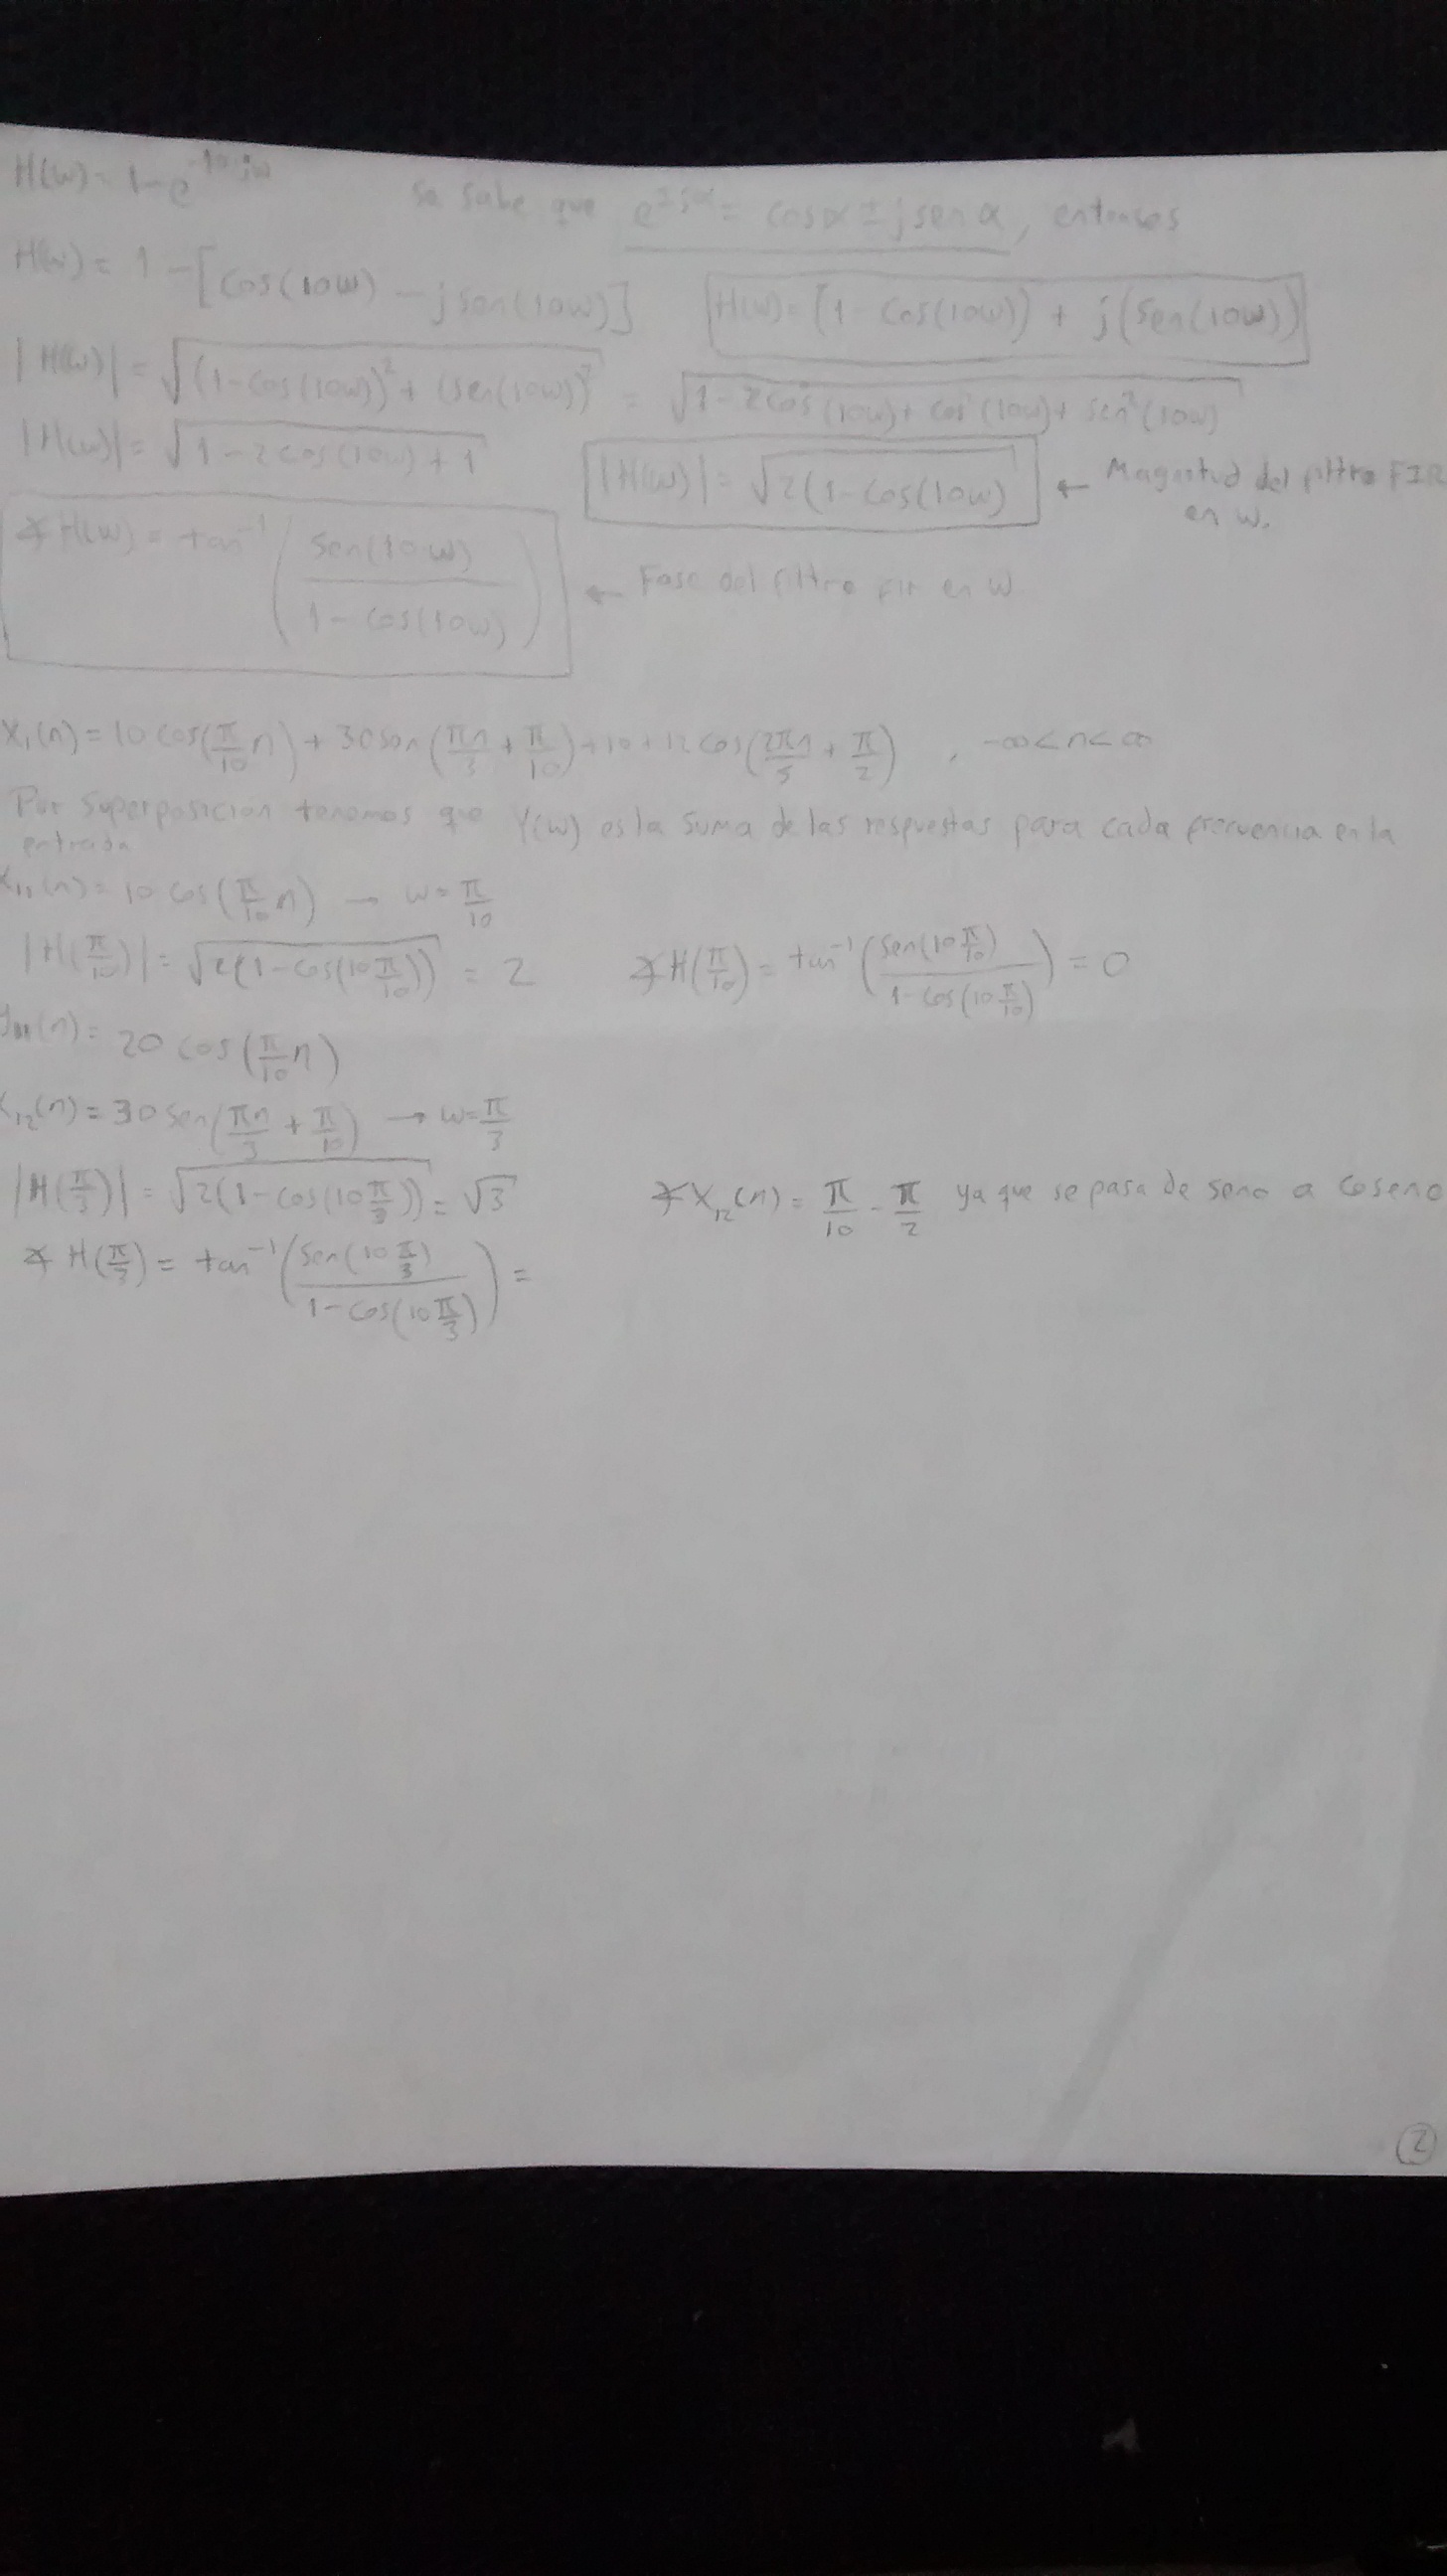 H(w) = 1 - e^{-10jw}   se sabe que e^{±jα} = cos α ± j sen α, entonces
H(w) = 1 - [cos(10w) - j sen(10w)]   H(w) = (1 - cos(10w)) + j(sen(10w))
|H(w)| = √((1-cos(10w))² + (sen(10w))²) = √(1 - 2cos(10w) + cos²(10w) + sen²(10w))
|H(w)| = √(1 - 2cos(10w) + 1)   |H(w)| = √(2(1 - cos(10w) ← Magnitud del filtro FIR
en w.
∡H(w) = tan⁻¹(sen(10w) / 1 - cos(10w)) ← Fase del filtro FIR en w
X₁(n) = 10 cos(π/10 n) + 30 sen(πn/3 + π/10) + 10 + 12 cos(2πn/5 + π/2) , -∞ < n < ∞
Por superposición tenemos que Y(w) es la suma de las respuestas para cada frecuencia en la
entrada
X₁₁(n) = 10 cos(π/10 n) → w = π/10
|H(π/10)| = √(2(1-cos(10 π/10))) = 2   ∡H(π/10) = tan⁻¹(sen(10 π/10) / 1-cos(10 π/10)) = 0
y₁₁(n) = 20 cos(π/10 n)
X₁₂(n) = 30 sen(πn/3 + π/10) → w = π/3
|H(π/3)| = √(2(1-cos(10 π/3))) = √3   ∡X₁₂(n) = π/10 - π/2 ya que se pasa de seno a coseno
∡H(π/3) = tan⁻¹(sen(10 π/3) / 1-cos(10 π/3)) =
2